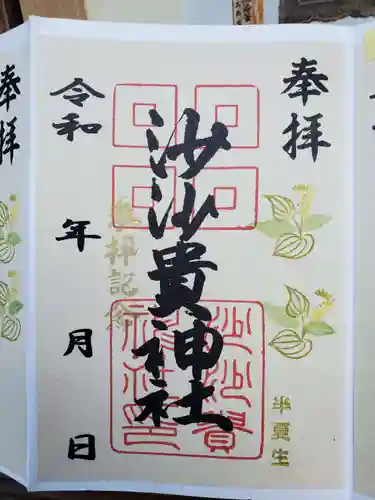 奉拝
沙沙貴神社
沙沙貴
神社印
参拝記念
半夏生
令和 年 月 日
奉拝